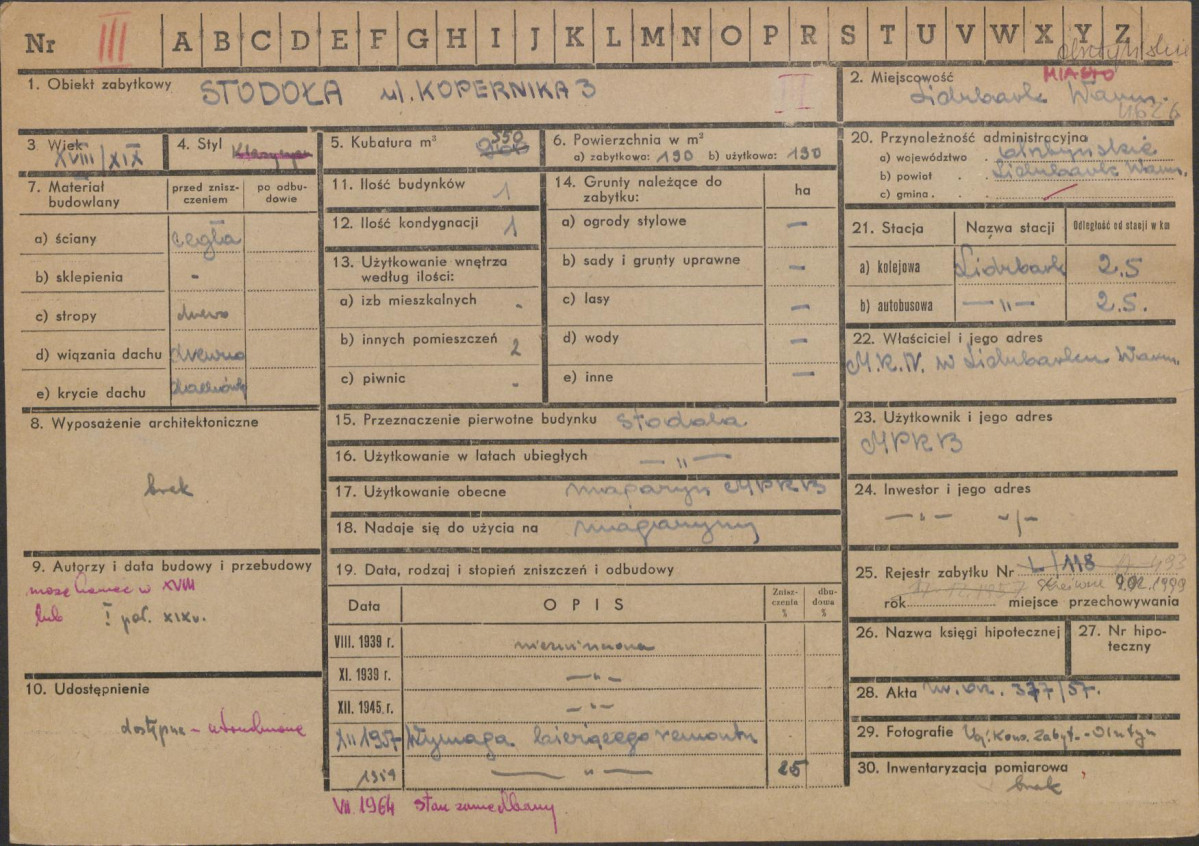 Nr III A B C D E F G H I J K L M N O P R S T U V W X Y Z
1. Obiekt zabytkowy STODOŁA ul. KOPERNIKA 3 II
2. Miejscowość MIASTO
Lidzbark Warm.
3 Wiek XVIII/XIX
4. Styl
5. Kubatura m³ 550
6. Powierzchnia w m²
a) zabytkowa: 190 b) użytkowa: 190
20. Przynależność administracyjna
a) województwo olsztyńskie
b) powiat Lidzbark Warm.
c) gmina
7. Materiał budowlany
przed zniszczeniem
po odbudowie
a) ściany cegła
b) sklepienia -
c) stropy drewno
d) wiązania dachu drewno
e) krycie dachu dachówka
11. Ilość budynków 1
12. Ilość kondygnacji 1
13. Użytkowanie wnętrza
według ilości:
a) izb mieszkalnych -
b) innych pomieszczeń 2
c) piwnic -
14. Grunty należące do
zabytku: ha
a) ogrody stylowe —
b) sady i grunty uprawne —
c) lasy —
d) wody —
e) inne —
21. Stacja Nazwa stacji Odległość od stacji w km
a) kolejowa Lidzbark 2.5
b) autobusowa — „ — 2.5.
22. Właściciel i jego adres
M.R.N. w Lidzbarku Warm.
8. Wyposażenie architektoniczne
brak
15. Przeznaczenie pierwotne budynku stodoła
16. Użytkowanie w latach ubiegłych — „ —
17. Użytkowanie obecne magazyn MPRB
18. Nadaje się do użycia na magazyny
23. Użytkownik i jego adres
MPRB
24. Inwestor i jego adres
— „ — -/-
9. Autorzy i data budowy i przebudowy
może koniec w XVIII
lub I poł. XIX w.
10. Udostępnienie
dostępne -
19. Data, rodzaj i stopień zniszczeń i odbudowy
Data OPIS Zniszczenia % dbudowa %
VIII. 1939 r. niezniszczona
XI. 1939 r. — „ —
XII. 1945. r. — „ —
XII 1957 Wymaga bieżącego remontu
1959 — „ — 25
VII. 1964 stan zaniedbany
25. Rejestr zabytku Nr L/118
rok miejsce przechowywania
26. Nazwa księgi hipotecznej
27. Nr hipoteczny
28. Akta 377/57.
29. Fotografie Woj. Kons. Zabyt. - Olsztyn
30. Inwentaryzacja pomiarowa
brak